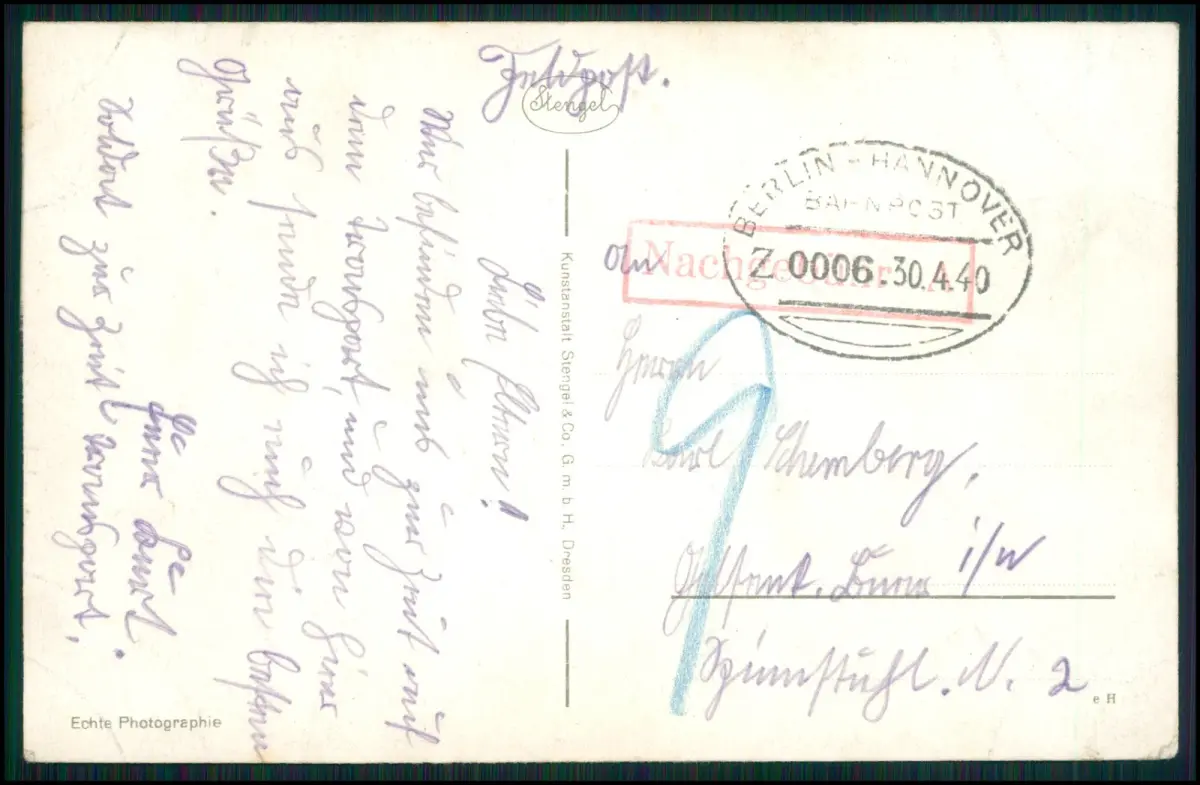 Feldpost.
Stengel
Liebe Eltern!
Wir befinden uns zur Zeit auf
dem Transport, und von hier
aus sende ich euch die besten
Grüße.
Euer
Soldat zur Zeit Transport.
Echte Photographie
Kunstanstalt Stengel & Co., G. m. b. H., Dresden
BERLIN - HANNOVER
BAHNPOST
Z. 0006. 30.4.40
Nachgebühr
An
Herrn
Karl Schemberg,
Gelsenk. Buer i/W
Spinnstuhl. N. 2
e H
9